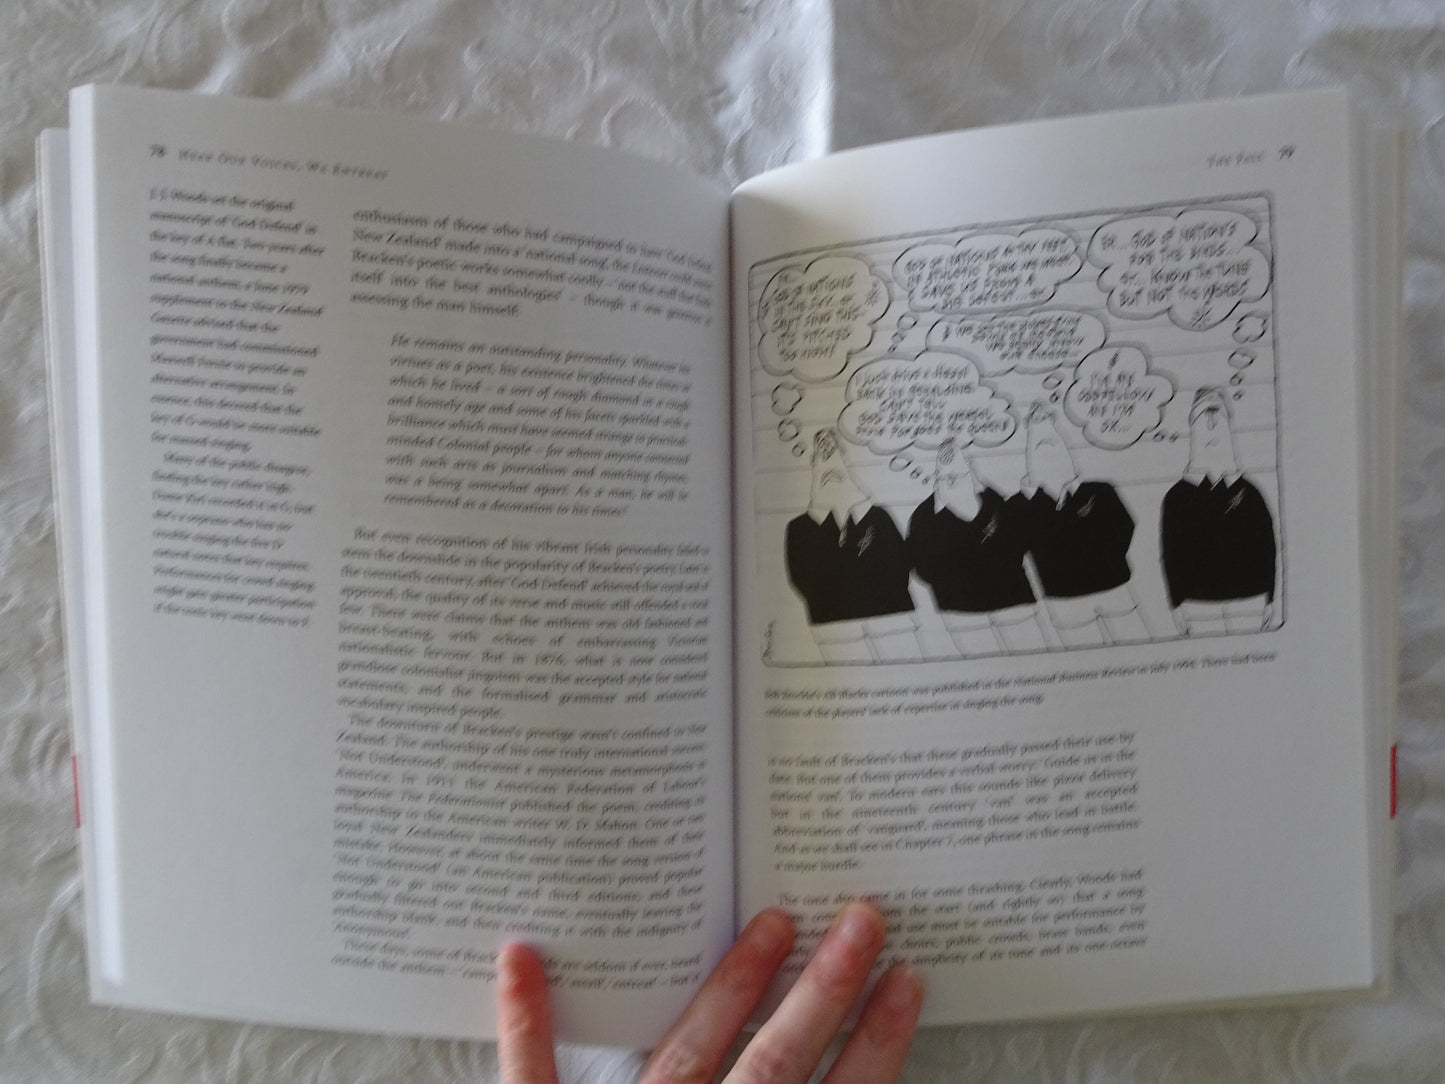 78 HEAR OUR VOICES, WE ENTREAT
J. J. Woods set the original
manuscript of 'God Defend' in
the key of A flat. Two years after
the song finally became a
national anthem, a June 1979
supplement to the New Zealand
Gazette advised that the
government had commissioned
Maxwell Fernie to provide an
alternative arrangement. In
essence, this decreed that the
key of G would be more suitable
for massed singing.
Many of the public disagree,
finding the key rather high.
recorded it in G, but
she's a soprano who has no
trouble singing the five D
natural notes that key requires.
Performances for crowd singing
might gain greater participation
if the whole key went down to F.
enthusiasm of those who had campaigned to have 'God Defend
New Zealand' made into a 'national song', the Listener could assess
Bracken's poetic works somewhat coolly – 'not the stuff that finds
itself into the best anthologies' – though it was generous in
assessing the man himself:
He remains an outstanding personality. Whatever his
virtues as a poet, his existence brightened the times in
which he lived – a sort of rough diamond in a rough
and homely age and some of his facets sparkled with a
brilliance which must have seemed strange to practical-
minded Colonial people – for whom anyone connected
with such arts as journalism and matching rhymes,
was a being somewhat apart. As a man, he will be
remembered as a decoration to his times.
But even recognition of his vibrant Irish personality failed to
stem the downslide in the popularity of Bracken's poetry. Later in
the twentieth century, after 'God Defend' achieved the royal seal of
approval, the quality of its verse and music still offended a vocal
few. There were claims that the anthem was old fashioned and
breast-beating, with echoes of embarrassing Victorian
nationalistic fervour. But in 1876, what is now considered
grandiose colonialist jingoism was the accepted style for national
statements, and the formalised grammar and aristocratic
vocabulary inspired people.
The downturn of Bracken's prestige wasn't confined to New
Zealand. The authorship of his one truly international success
'Not Understood', underwent a mysterious metamorphosis in
America. In 1915 the American Federation of Labour's
magazine The Federationist published the poem, crediting its
authorship to the American writer W. D. Mahon. One or two
loyal New Zealanders immediately informed them of their
mistake. However, at about the same time the song version of
'Not Understood' (an American publication) proved popular
enough to go into second and third editions, and these
gradually filtered out Bracken's name, eventually leaving the
authorship blank, and then crediting it with the indignity of
'Anonymous'.
These days, some of Bracken's words are seldom if ever, heard
outside the anthem – 'assail', 'entreat' – but it
79
GOD OF NATIONS
CAN'T SING THIS
IT'S PITCHED
TOO HIGH!
GOD OF NATIONS AT THY FEET
IN ATHLETIC
SAVE US FROM A
BIG DEFEAT... ER
ER... GOD OF NATIONS
FOR THE BIRDS...
ER... I KNOW THE TUNE
BUT NOT THE WORDS
All Blacks cartoon was published in the National Business Review in July 1995. There had been
criticism of the players' lack of expertise in singing the song.
is no fault of Bracken's that these gradually passed their use-by
date. But one of them provides a verbal worry: 'Guide us in the
nations' van'. To modern ears this sounds like pizza delivery
but in the nineteenth century 'van' was an accepted
abbreviation of 'vanguard', meaning those who lead in battle.
And as we shall see in Chapter 7, one phrase in the song remains
a major hurdle.
The tune also came in for some thrashing. Clearly, Woods had
the start (and rightly so) that a song
use must be suitable for performance by
choirs, public crowds, brass bands, even
the simplicity of its tune and its one-octave